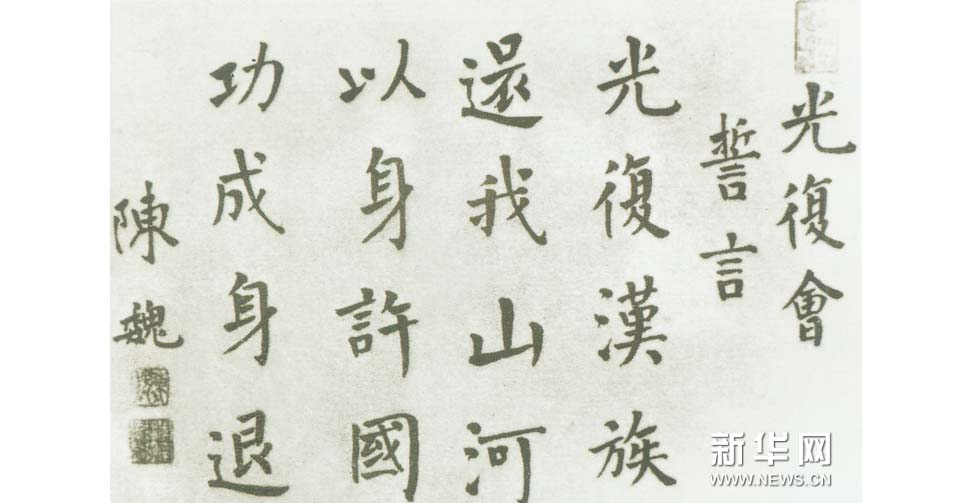 光復會
誓言
光復漢族
還我山河
以身許國
功成身退
陳魏
新华网
WWW.NEWS.CN